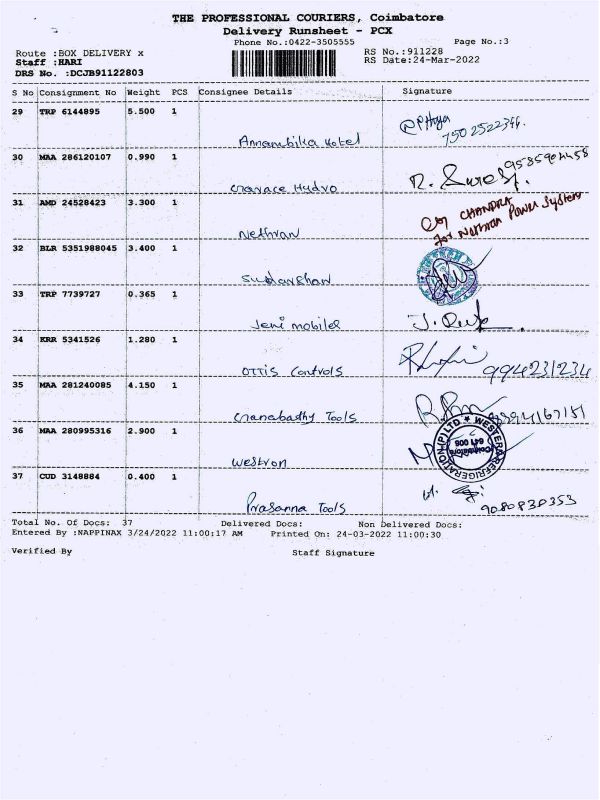 THE PROFESSIONAL COURIERS, Coimbatore
Delivery Runsheet - PCX
Phone No.:0422-3505555 Page No.:3
Route :BOX DELIVERY x RS No.:911228
Staff :HARI RS Date:24-Mar-2022
DRS No. :DCJB91122803
S No Consignment No Weight PCS Consignee Details Signature
29 TRP 6144895 5.500 1
Annambika Hotel
30 MAA 286120107 0.990 1
31 AMD 24528423 3.300 1
CHANDRA
for Nethran Power System
Nethran
32 BLR 5351988045 3.400 1
Sudarshan
33 TRP 7739727 0.365 1
Jeni mobiles
34 KRR 5341526 1.280 1
OTTIS Controls 994231234
35 MAA 281240085 4.150 1
Tools
36 MAA 280995316 2.900 1
WESTERN REFRIGERATION (P) LTD
Coimbatore
641 006
Westron
37 CUD 3148884 0.400 1
Prasanna Tools 9080830353
Total No. Of Docs: 37 Delivered Docs: Non Delivered Docs:
Entered By :NAPPINAX 3/24/2022 11:00:17 AM Printed On: 24-03-2022 11:00:30
Verified By Staff Signature